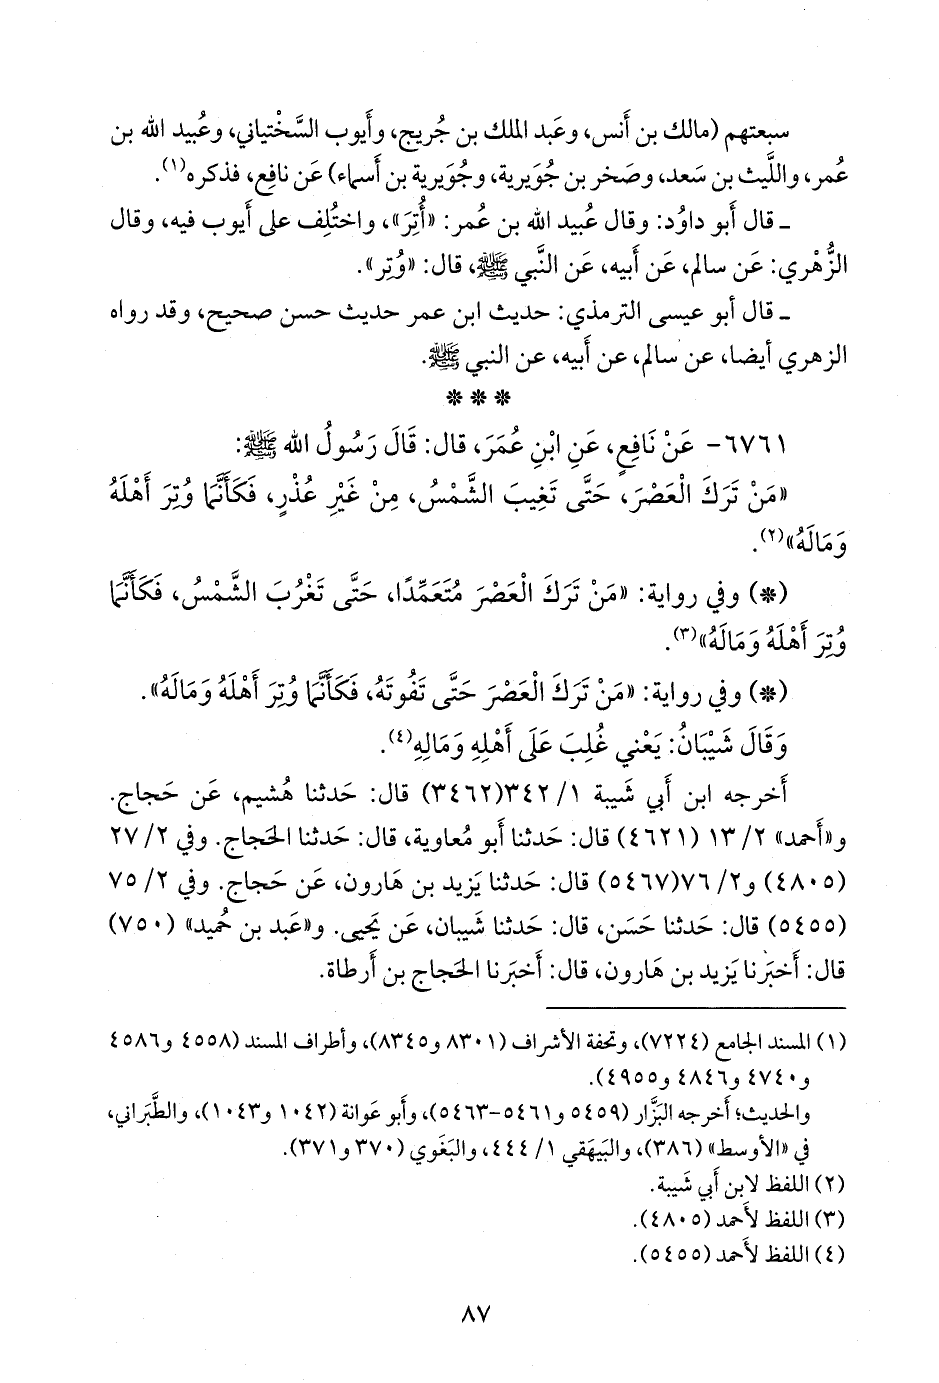 سبعتهم (مالك بن أَنس، وعَبد الملك بن جُريج، وأَيوب السَّخْتياني، وعُبيد الله بن
عُمر، واللَّيث بن سَعد، وصَخر بن جُوَيرية، وجُوَيرية بن أَسماء) عَن نافِع، فذكره(١).
ـ قال أَبو داوُد: وقال عُبيد الله بن عُمر: «أُتِرَ»، واختُلِف على أَيوب فيه، وقال
الزُّهْري: عَن سالم، عَن أَبيه، عَن النَّبي ﷺ، قال: «وُتِر».
ـ قال أَبو عيسى الترمذي: حديث ابن عمر حديث حسن صحيح، وقد رواه
الزهري أيضا، عن سالم، عن أَبيه، عن النبي ﷺ.
* * *
٦٧٦١- عَنْ نَافِعٍ، عَنِ ابْنِ عُمَرَ، قال: قَالَ رَسُولُ الله ﷺ:
«مَنْ تَرَكَ الْعَصْرَ، حَتَّى تَغِيبَ الشَّمْسُ، مِنْ غَيْرِ عُذْرٍ، فَكَأَنَّمَا وُتِرَ أَهْلَهُ
وَمَالَهُ»(٢).
(*) وفي رواية: «مَنْ تَرَكَ الْعَصْرَ مُتَعَمِّدًا، حَتَّى تَغْرُبَ الشَّمْسُ، فَكَأَنَّمَا
وُتِرَ أَهْلَهُ وَمَالَهُ»(٣).
(*) وفي رواية: «مَنْ تَرَكَ الْعَصْرَ حَتَّى تَفُوتَهُ، فَكَأَنَّمَا وُتِرَ أَهْلَهُ وَمَالَهُ».
وَقَالَ شَيْبَانُ: يَعْنِي غُلِبَ عَلَى أَهْلِهِ وَمَالِهِ(٤).
أَخرجه ابن أَبي شَيبة ١/ ٣٤٢(٣٤٦٢) قال: حَدثنا هُشيم، عَن حَجاج.
و«أَحمد» ٢/ ١٣ (٤٦٢١) قال: حَدثنا أَبو مُعاوية، قال: حَدثنا الحَجاج. وفي ٢/ ٢٧
(٤٨٠٥) و٢/ ٧٦(٥٤٦٧) قال: حَدثنا يَزيد بن هَارون، عَن حَجاج. وفي ٢/ ٧٥
(٥٤٥٥) قال: حَدثنا حَسَن، قال: حَدثنا شَيبان، عَن يَحيى. و«عَبد بن حُميد» (٧٥٠)
قال: أَخبَرنا يَزيد بن هَارون، قال: أَخبَرنا الحَجاج بن أَرطاة.
(١) المسند الجامع (٧٢٢٤)، وتحفة الأشراف (٨٣٠١ و٨٣٤٥)، وأطراف المسند (٤٥٥٨ و٤٥٨٦
و٤٧٤٠ و٤٨٤٦ و٤٩٥٥).
والحديث؛ أَخرجه البَزَّار (٥٤٥٩ و٥٤٦١-٥٤٦٣)، وأَبو عَوانة (١٠٤٢ و١٠٤٣)، والطَّبَراني،
في «الأوسط» (٣٨٦)، والبَيهَقي ١/ ٤٤٤، والبَغَوي (٣٧٠ و٣٧١).
(٢) اللفظ لابن أَبي شَيبة.
(٣) اللفظ لأحمد (٤٨٠٥).
(٤) اللفظ لأحمد (٥٤٥٥).
٨٧